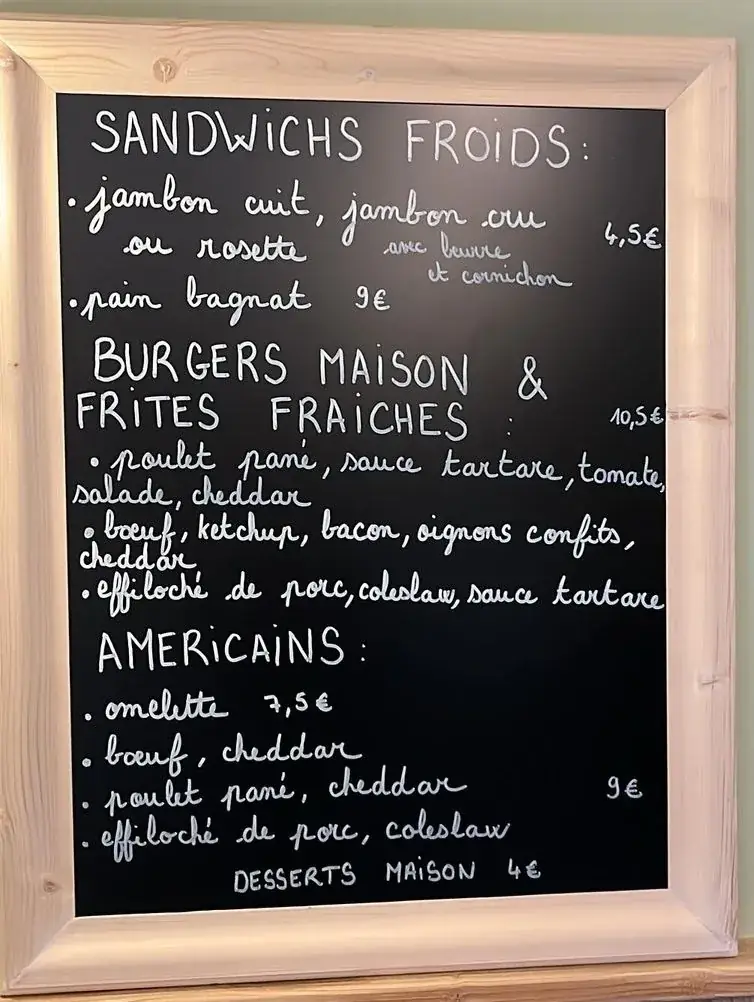 SANDWiCHS FROiDS:
• jambon cuit, jambon cru
ou rosette avec beurre 4,5€
et cornichon
• pain bagnat 9€
BURGERS MAiSON &
FRiTES FRAiCHES : 10,5€
• poulet pané, sauce tartare, tomate,
salade, cheddar
• bœuf, ketchup, bacon, oignons confits,
cheddar
• effiloché de porc, coleslaw, sauce tartare
AMERiCAiNS :
• omelette 7,5€
• bœuf, cheddar
• poulet pané, cheddar 9€
• effiloché de porc, coleslaw
DESSERTS MAiSON 4€